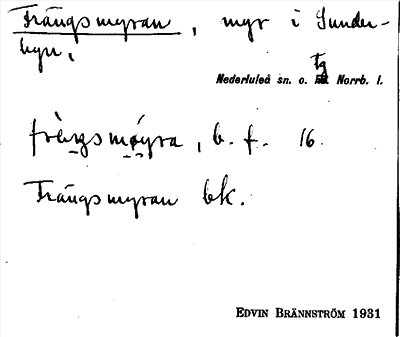 Trängsmyran, myr i Sunder-
byn.
Nederluleå sn. o. Tg Norrb. l.
tràŋgsmøyra, b. f. 16.
Trängsmyran bk.
EDVIN BRÄNNSTRÖM 1931